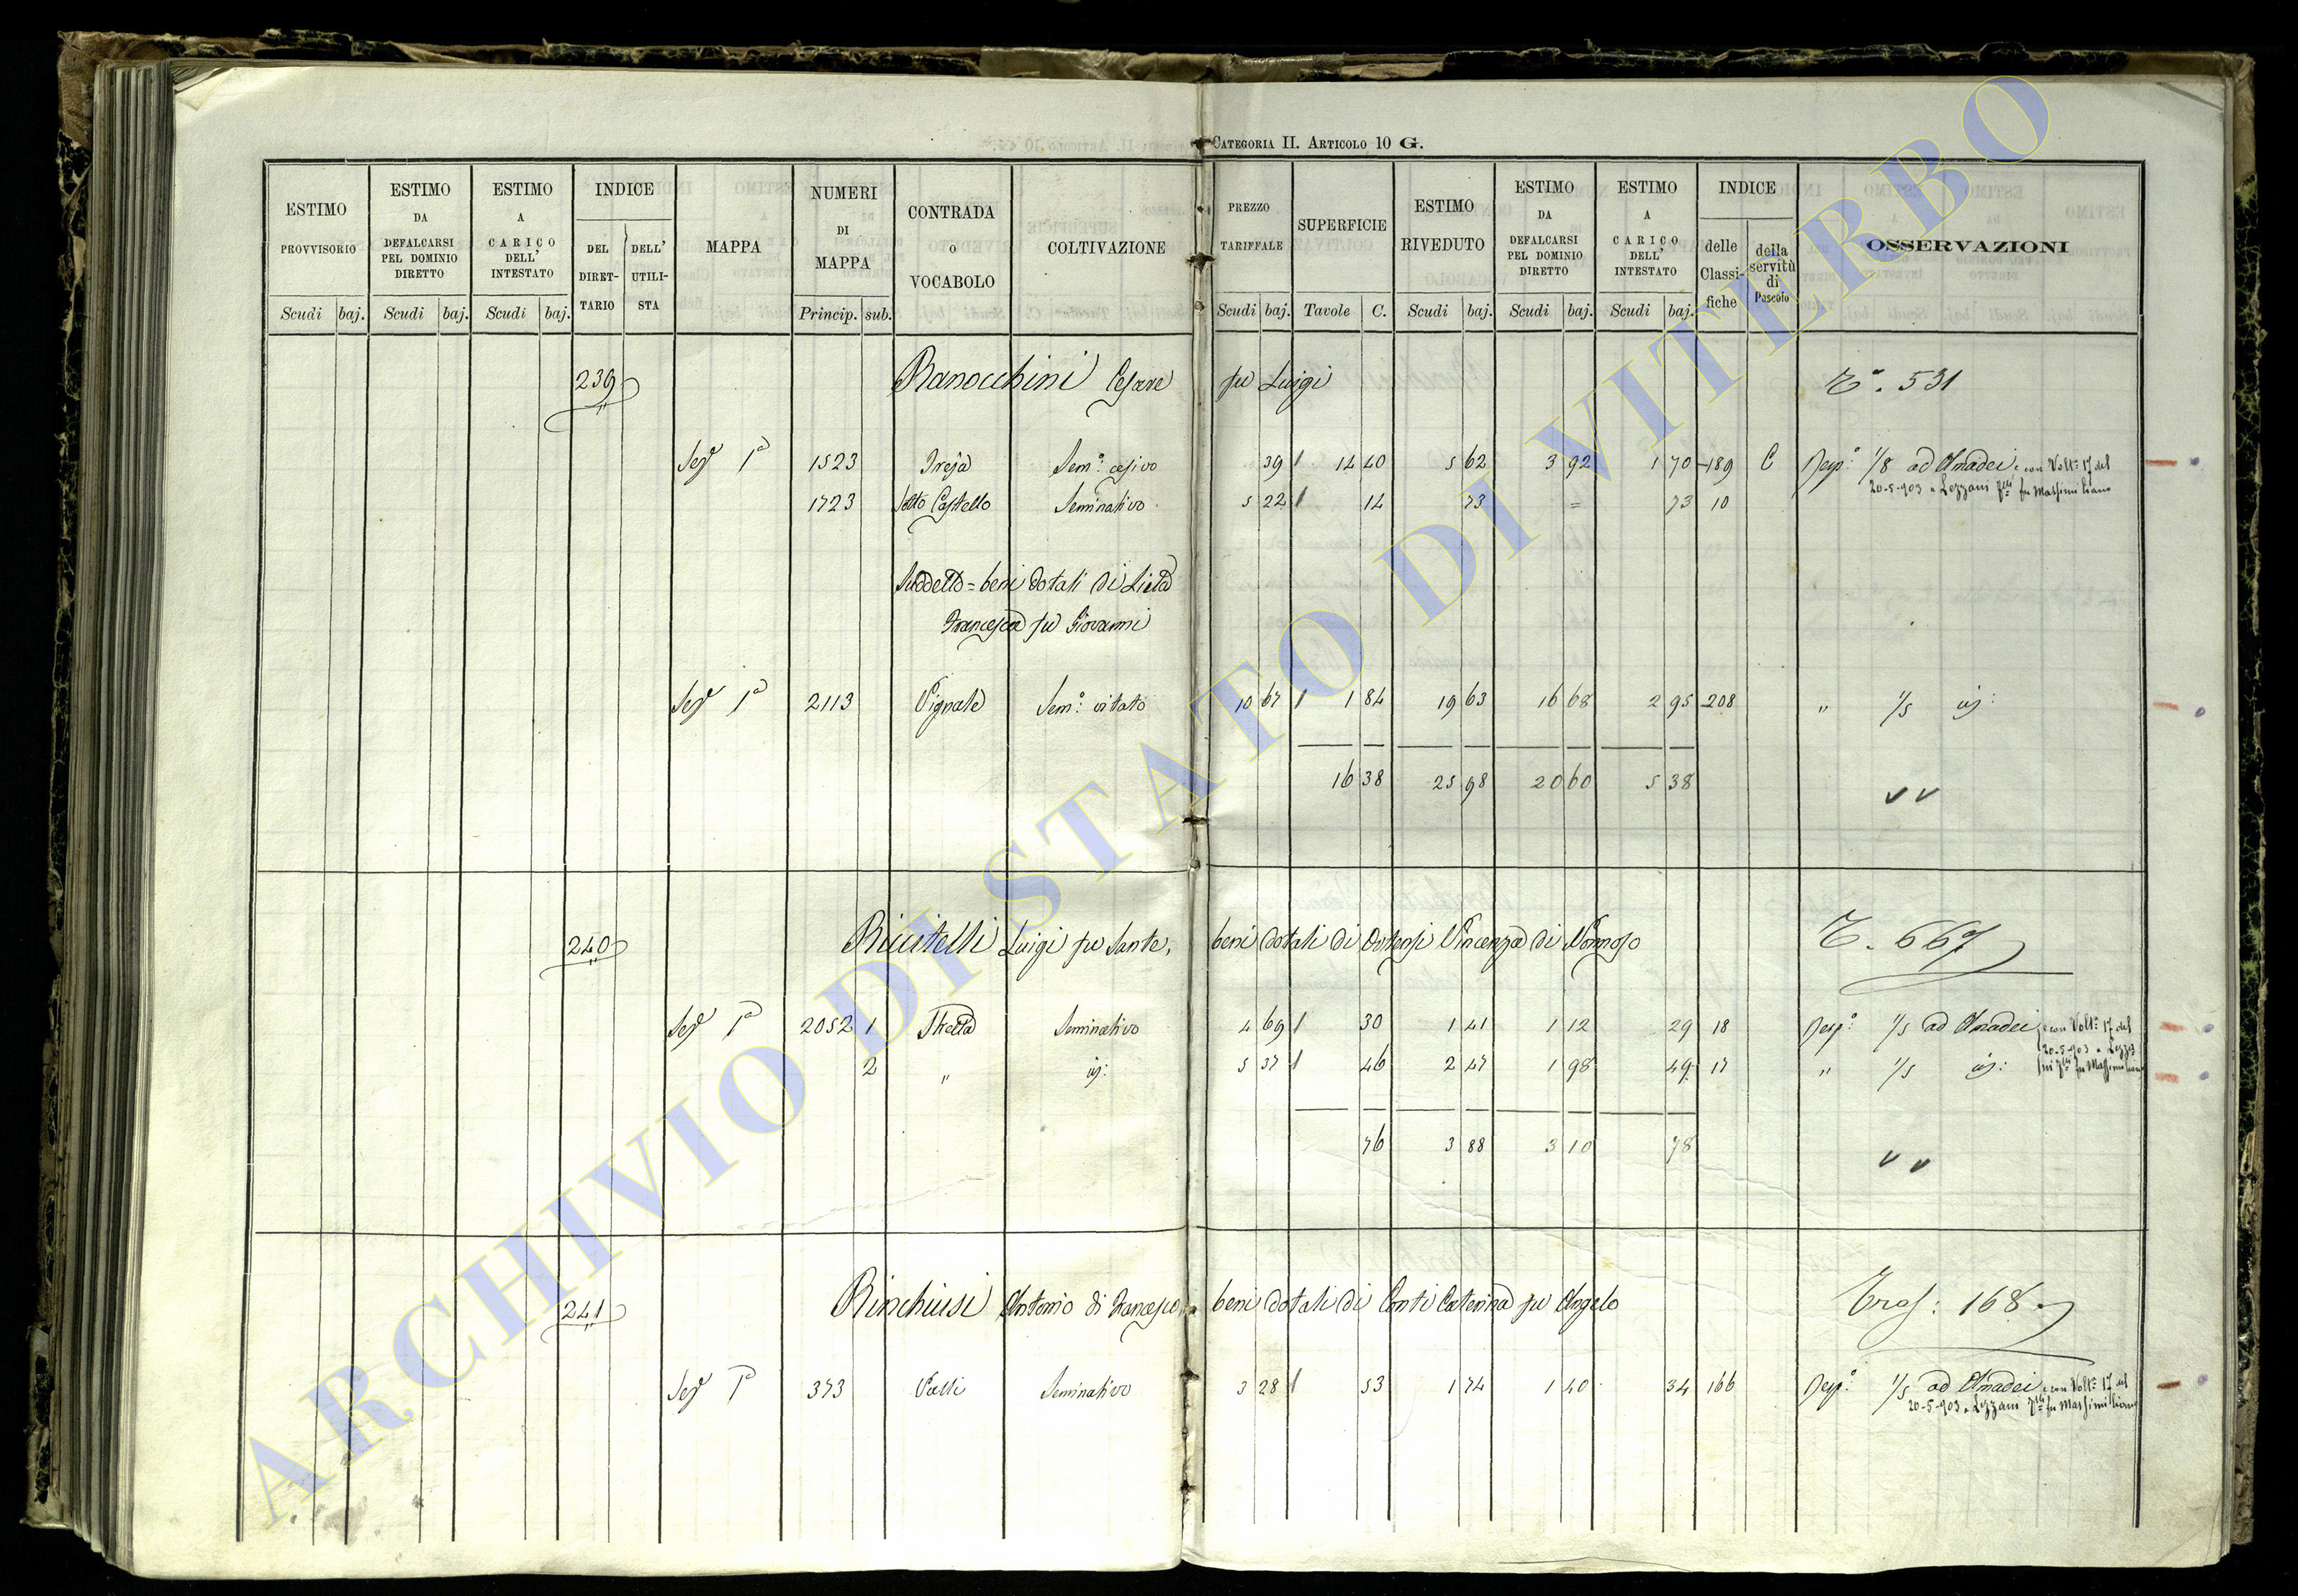 CATEGORIA II. ARTICOLO 10 G.
ESTIMO PROVVISORIO Scudi baj.
ESTIMO DA DEFALCARSI PEL DOMINIO DIRETTO Scudi baj.
ESTIMO A CARICO DELL' INTESTATO Scudi baj.
INDICE DEL DIRET-TARIO DELL' UTILI-STA
MAPPA
NUMERI DI MAPPA Princip. sub.
CONTRADA o VOCABOLO
COLTIVAZIONE
PREZZO TARIFFALE Scudi baj.
SUPERFICIE Tavole C.
ESTIMO RIVEDUTO Scudi baj.
ESTIMO DA DEFALCARSI PEL DOMINIO DIRETTO Scudi baj.
ESTIMO A CARICO DELL' INTESTATO Scudi baj.
INDICE delle Classi-fiche della servitù di Pascolo
OSSERVAZIONI
239 Ranocchini Cesare fu Luigi 531
1523 Treja Sem.o cesivo 39 14 40 5 62 3 92 1 70 189 C 1/8 ad Amadei e con Volt.a 17 del
20-5-903 a Lezzani fu Massimiliano
1723 Sotto Castello Seminativo 5 22 14 73 = 73 10
Suddetto = beni dotali di
Francesca fu Giovanni
2113 Vignale Sem.o vitato 10 67 1 84 19 63 16 68 2 95 208 " 1/5
16 38 25 98 20 60 5 38
240 Riccitelli Luigi fu Sante, beni dotali di Ortensi Vincenza di Nonnoso 667
2052 1 Seminativo 4 69 30 1 41 1 12 29 18 1/5 ad Amadei e con Volt.a 17 del
20-5-903 a Lezza
ni fu Massimiliano
2 " 5 37 46 2 47 1 98 49 17 " 1/5
76 3 88 3 10 78
241 Rinchiusi Antonio di Francesco beni dotali di Conti Caterina fu Angelo Tras: 168
373 Valli Seminativo 3 28 53 1 74 1 40 34 166 1/5 ad Amadei e con Volt.a 17 del
20-5-903 a Lezzani fu Massimiliano
ARCHIVIO DI STATO DI VITERBO